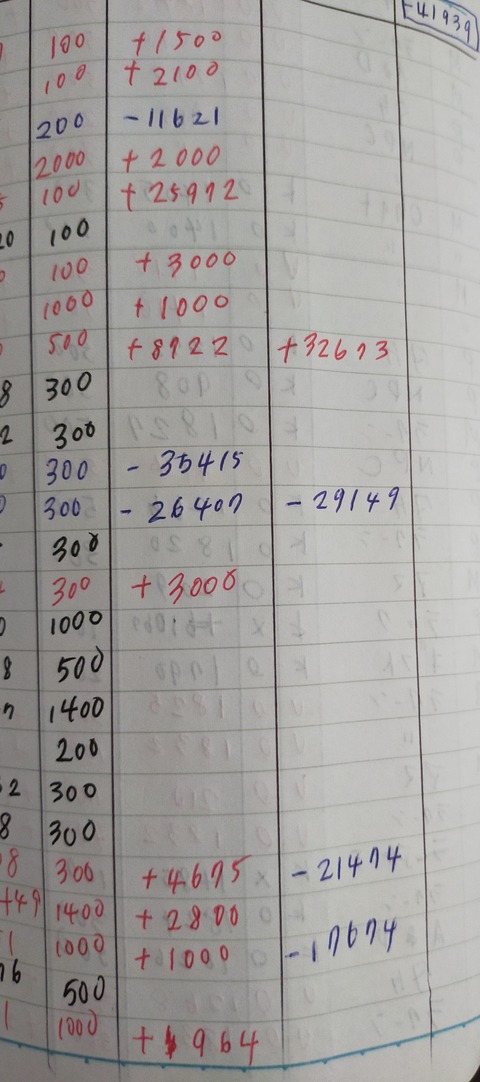 -41939
100 +1500
100 +2100
200 -11621
2000 +2000
100 +25972
20 100
100 +3000
1000 +1000
500 +8722 +32673
8 300
2 300
0 300 - 35415
300 - 26407 - 29149
300
300 +3000
0 1000
8 500
7 1400
200
2 300
8 300
8 300 +4675 - 21474
+49 1400 +2800
1 1000 +1000 -17674
76 500
1 1000 + 964